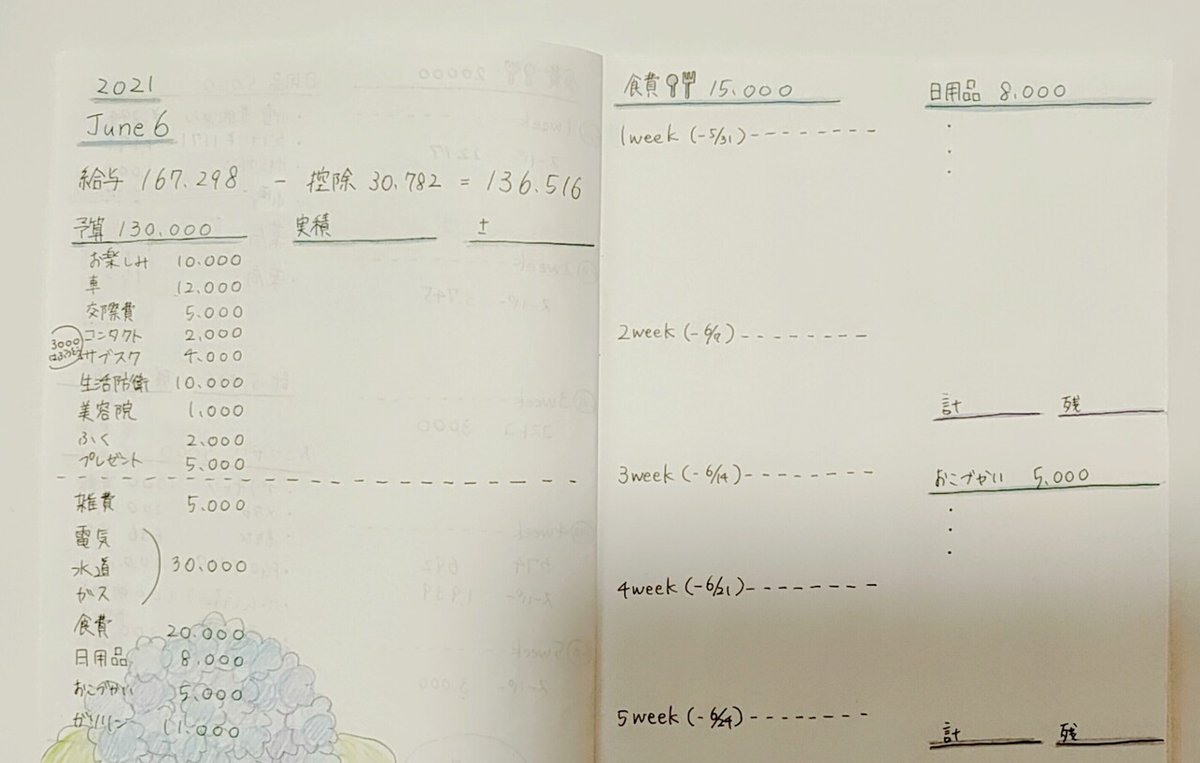 2021
June 6
給与 167.298 - 控除 30.782 = 136.516
予算 130.000 実積 ±
お楽しみ 10.000
車 12.000
交際費 5.000
コンタクト 2.000
3000
サブスク 4.000
生活防衛 10.000
美容院 1.000
ふく 2.000
プレゼント 5.000
雑費 5.000
電気
水道 30.000
ガス
食費 20.000
日用品 8.000
おこづかい 5.000
ガソリン 11.000
食費 15.000
1week (-5/31)
2week (-6/7)
3week (-6/14)
4week (-6/21)
5week (-6/24)
日用品 8.000
・
・
・
計 残
おこづかい 5.000
・
・
・
計 残